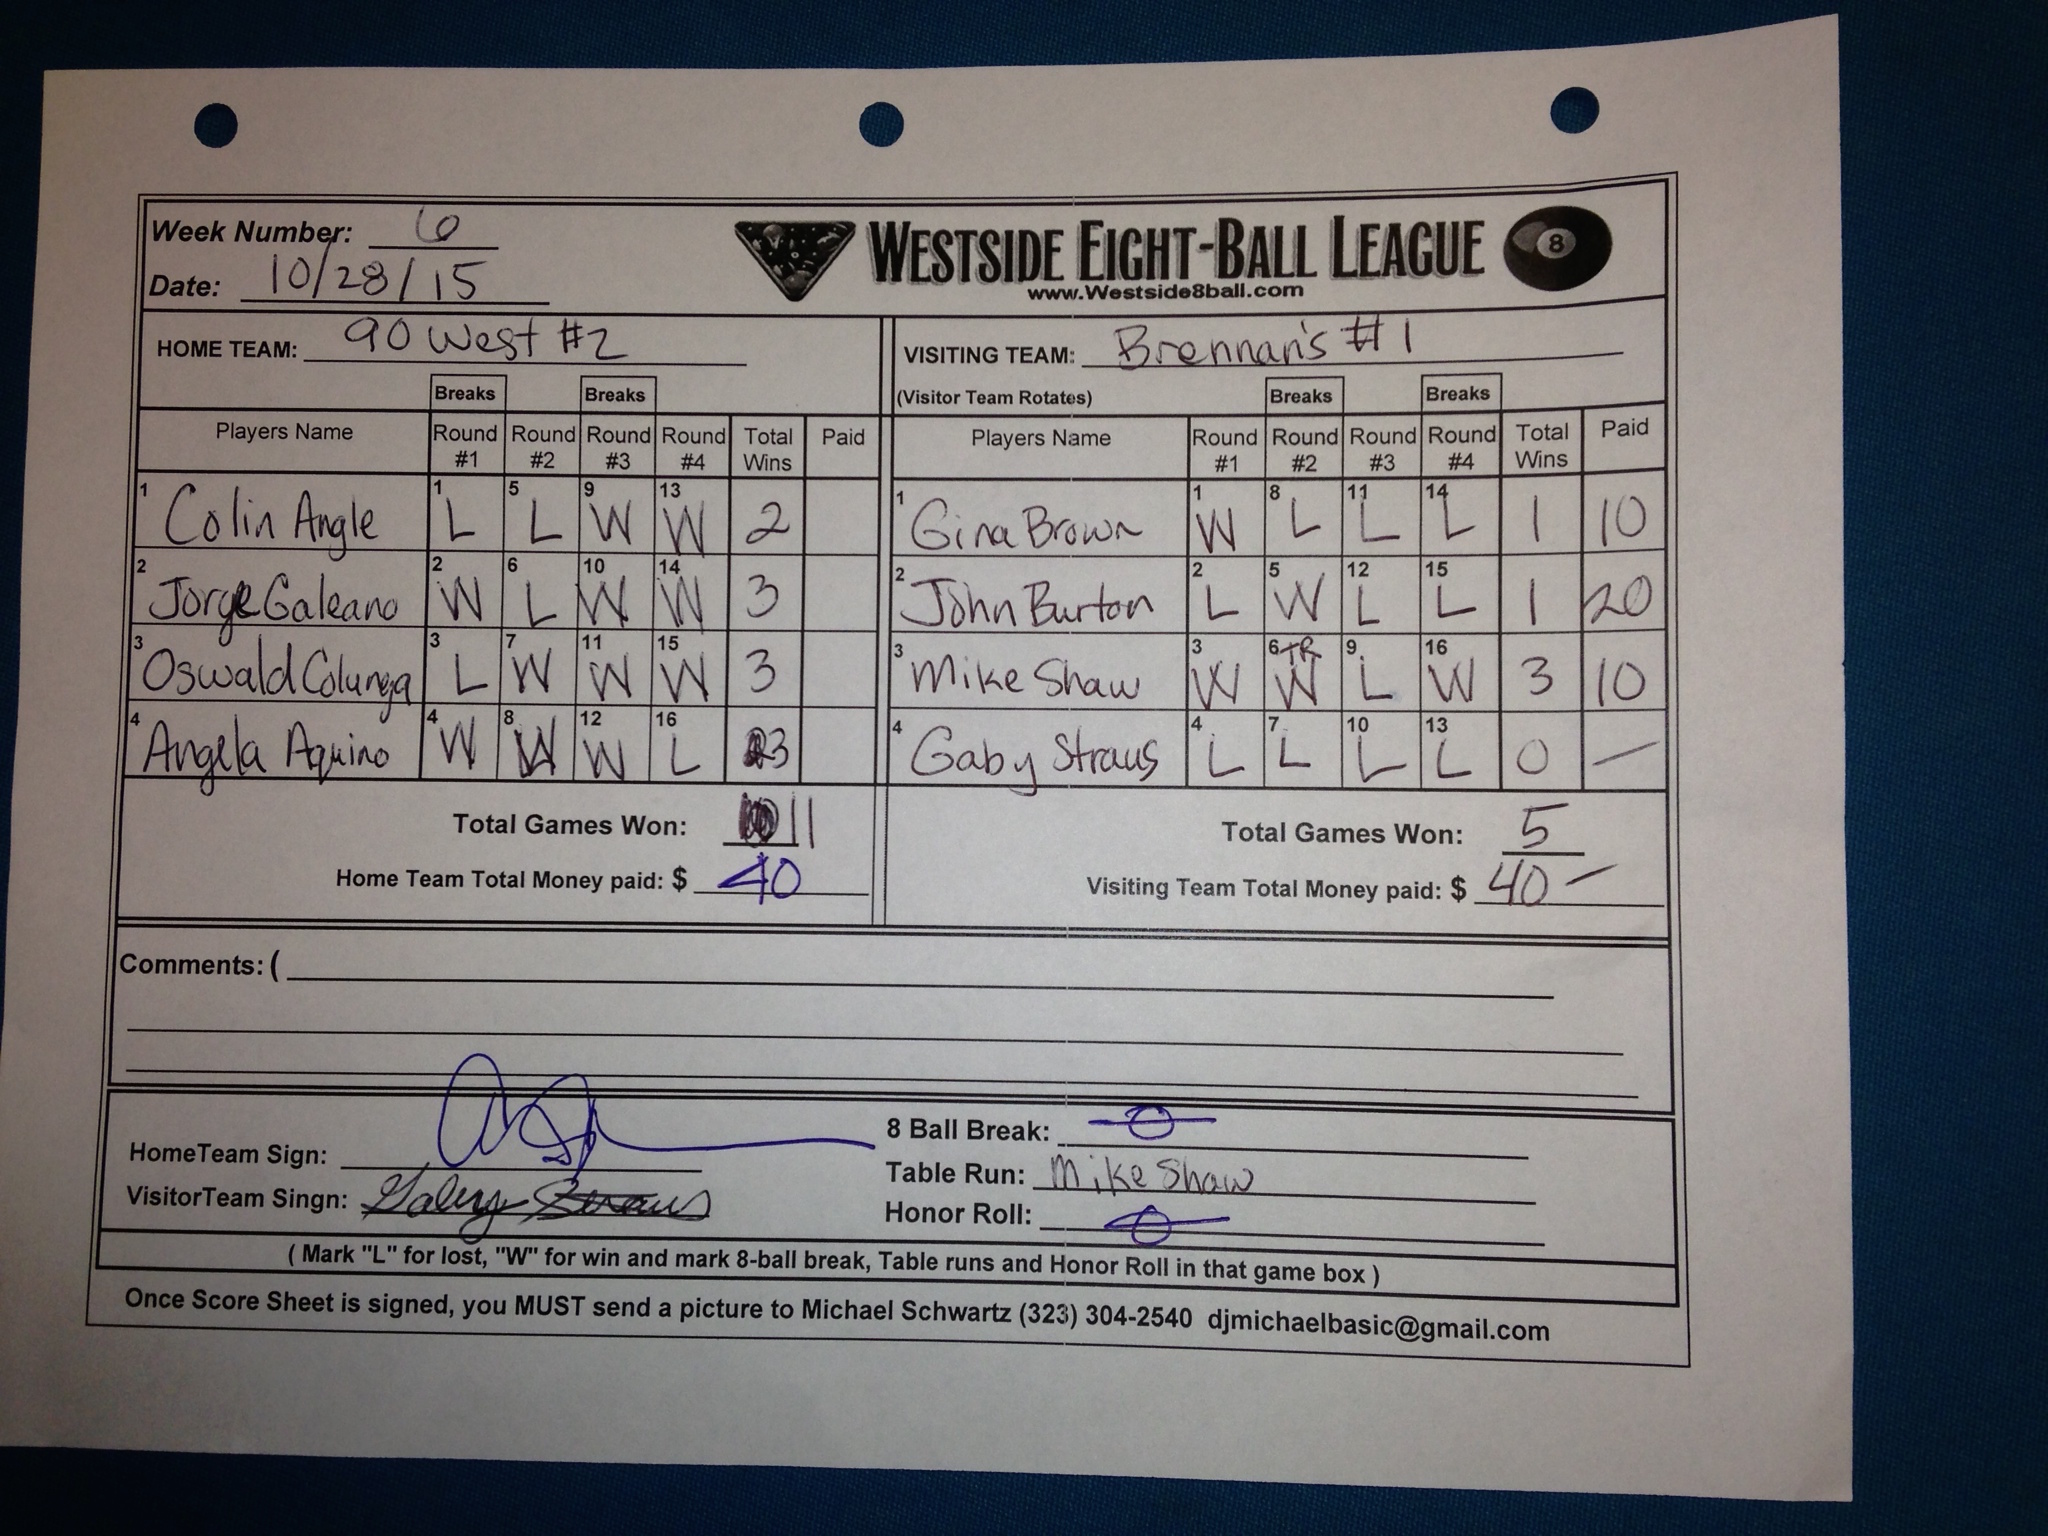 Week Number: 6
Date: 10/28/15
WESTSIDE EIGHT-BALL LEAGUE 8
www.Westside8ball.com
HOME TEAM: 90 West #2
VISITING TEAM: Brennan's #1
Breaks Breaks
(Visitor Team Rotates) Breaks Breaks
Players Name Round #1 Round #2 Round #3 Round #4 Total Wins Paid
1 Colin Angle 1 L 5 L 9 W 13 W 2
2 Jorge Galeano 2 W 6 L 10 W 14 W 3
3 Oswald Colunga 3 L 7 W 11 W 15 W 3
4 Angela Aquino 4 W 8 W 12 W 16 L 3
Total Games Won: 11
Home Team Total Money paid: $ 40
Players Name Round #1 Round #2 Round #3 Round #4 Total Wins Paid
1 Gina Brown 1 W 8 L 11 L 14 L 1 10
2 John Burton 2 L 5 W 12 L 15 L 1 20
3 Mike Shaw 3 W 6 TR W 9 L 16 W 3 10
4 Gaby Straus 4 L 7 L 10 L 13 L 0 —
Total Games Won: 5
Visiting Team Total Money paid: $ 40 —
Comments: (
HomeTeam Sign:
VisitorTeam Singn: Gaby Straus
8 Ball Break: 0
Table Run: Mike Shaw
Honor Roll: 0
( Mark "L" for lost, "W" for win and mark 8-ball break, Table runs and Honor Roll in that game box )
Once Score Sheet is signed, you MUST send a picture to Michael Schwartz (323) 304-2540 djmichaelbasic@gmail.com